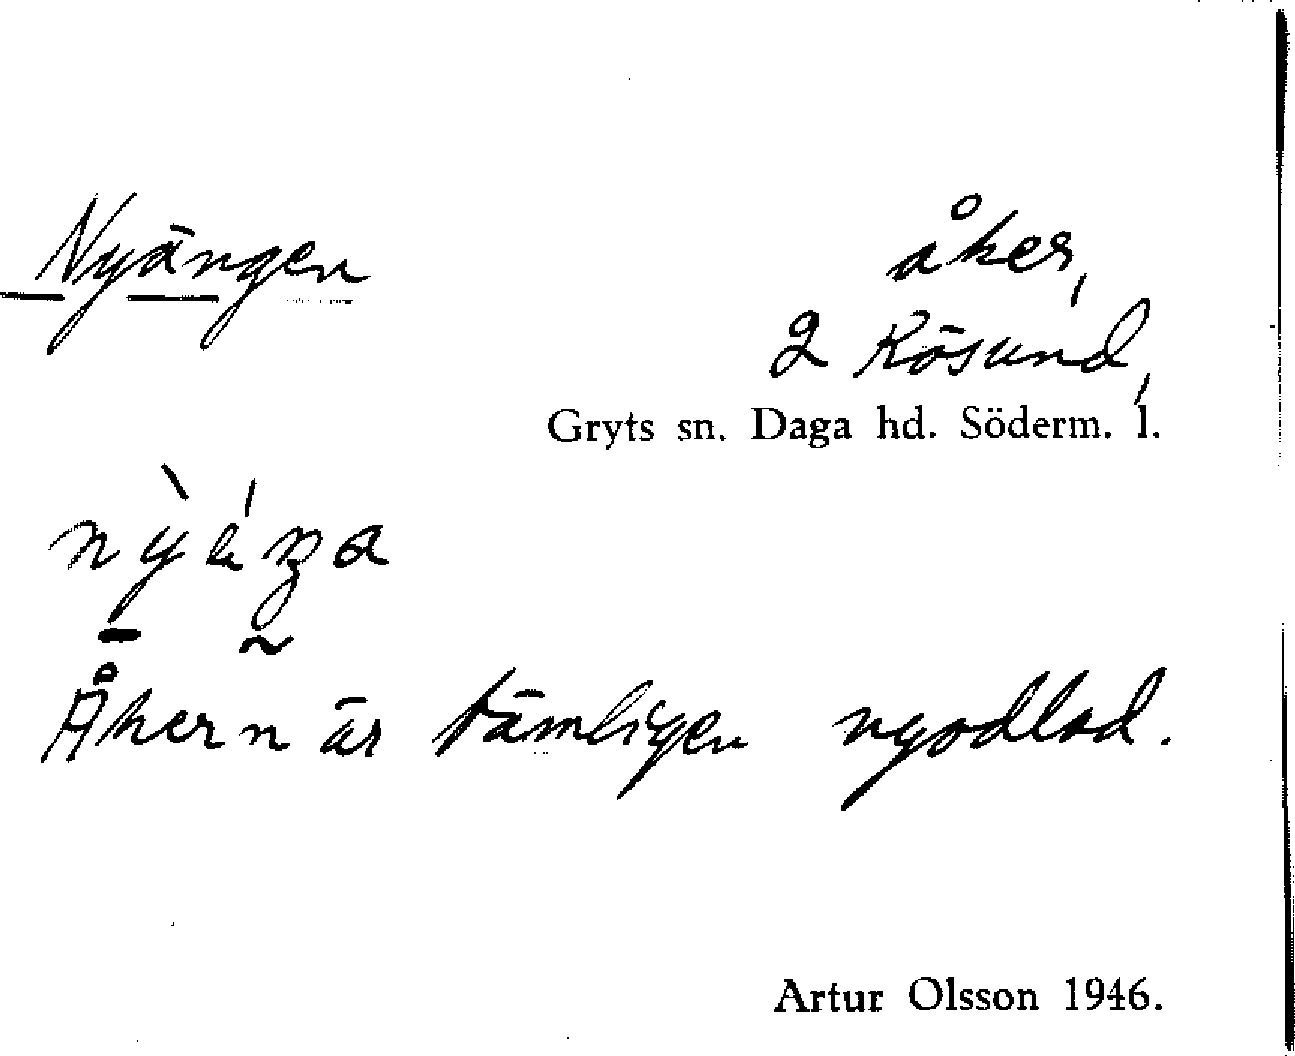 Nyängen
åker,
2 Kösund,
Gryts sn. Daga hd. Söderm. l.
Åkern är tämligen nyodlad.
Artur Olsson 1946.